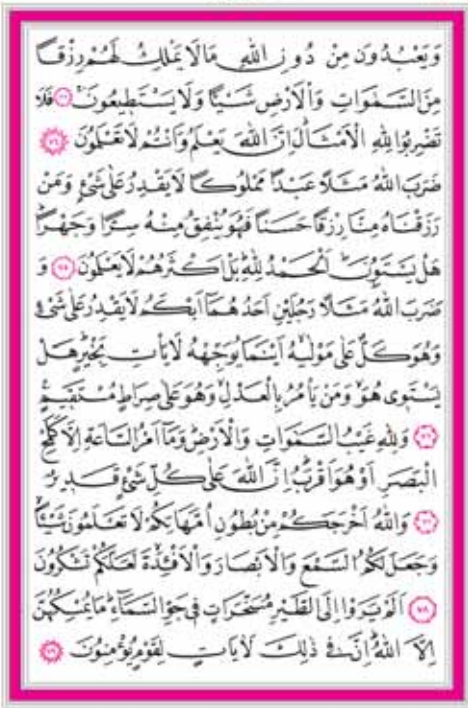 وَيَعْبُدُونَ مِنْ دُونِ اللّٰهِ مَا لَا يَمْلِكُ لَهُمْ رِزْقًا
مِنَ السَّمٰوَاتِ وَالْاَرْضِ شَيْـًٔا وَلَا يَسْتَط۪يعُونَۚ ﴿٧٣﴾ فَلَا
تَضْرِبُوا لِلّٰهِ الْاَمْثَالَۜ اِنَّ اللّٰهَ يَعْلَمُ وَاَنْتُمْ لَا تَعْلَمُونَ ﴿٧٤﴾
ضَرَبَ اللّٰهُ مَثَلًا عَبْدًا مَمْلُوكًا لَا يَقْدِرُ عَلٰى شَيْءٍ وَمَنْ
رَزَقْنَاهُ مِنَّا رِزْقًا حَسَنًا فَهُوَ يُنْفِقُ مِنْهُ سِرًّا وَجَهْرًاۜ
هَلْ يَسْتَوُ۫نَۜ اَلْحَمْدُ لِلّٰهِۜ بَلْ اَكْثَرُهُمْ لَا يَعْلَمُونَ ﴿٧٥﴾ وَ
ضَرَبَ اللّٰهُ مَثَلًا رَجُلَيْنِ اَحَدُهُمَٓا اَبْكَمُ لَا يَقْدِرُ عَلٰى شَيْءٍ
وَهُوَ كَلٌّ عَلٰى مَوْلٰيهُۙ اَيْنَمَا يُوَجِّهْهُ لَا يَأْتِ بِخَيْرٍۜ هَلْ
يَسْتَو۪ي هُوَۙ وَمَنْ يَأْمُرُ بِالْعَدْلِۙ وَهُوَ عَلٰى صِرَاطٍ مُسْتَق۪يمٍ۟
﴿٧٦﴾ وَلِلّٰهِ غَيْبُ السَّمٰوَاتِ وَالْاَرْضِۜ وَمَٓا اَمْرُ السَّاعَةِ اِلَّا كَلَمْحِ
الْبَصَرِ اَوْ هُوَ اَقْرَبُۜ اِنَّ اللّٰهَ عَلٰى كُلِّ شَيْءٍ قَد۪يرٌ
﴿٧٧﴾ وَاللّٰهُ اَخْرَجَكُمْ مِنْ بُطُونِ اُمَّهَاتِكُمْ لَا تَعْلَمُونَ شَيْـًٔاۙ
وَجَعَلَ لَكُمُ السَّمْعَ وَالْاَبْصَارَ وَالْاَفْـِٔدَةَۙ لَعَلَّكُمْ تَشْكُرُونَ
﴿٧٨﴾ اَلَمْ يَرَوْا اِلَى الطَّيْرِ مُسَخَّرَاتٍ ف۪ي جَوِّ السَّمَٓاءِۜ مَا يُمْسِكُهُنَّ
اِلَّا اللّٰهُۜ اِنَّ ف۪ي ذٰلِكَ لَاٰيَاتٍ لِقَوْمٍ يُؤْمِنُونَ ﴿٧٩﴾